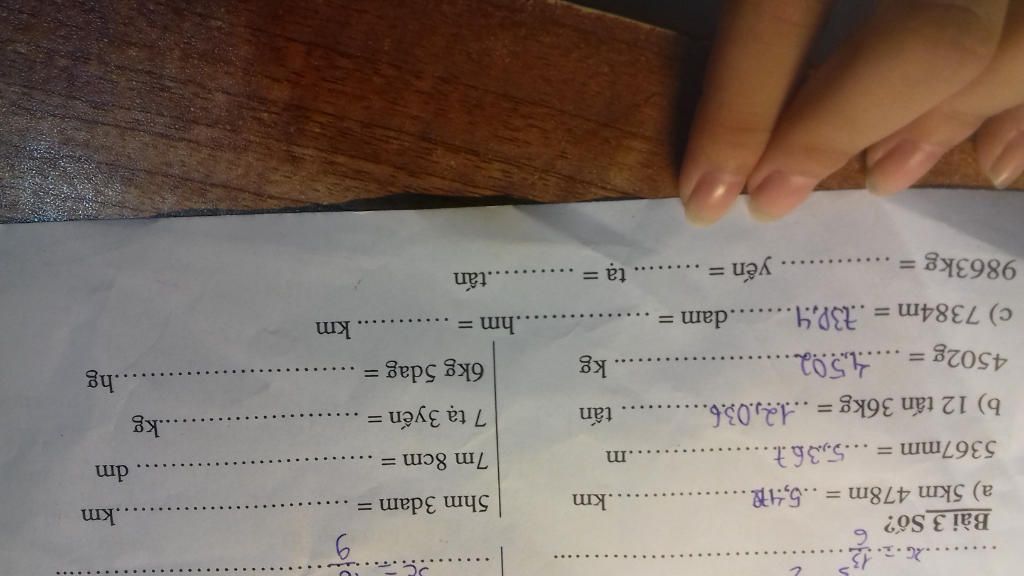 x = 13/6
x = 9
Bài 3 Số?
a) 5km 478m = ...5,478...km
5hm 3dam = ...km
5367mm = ...5,367...m
7m 8cm = ... dm
b) 12 tấn 36kg = ...12,036... tấn
7 tạ 3yến = ...kg
4502g = ...4,502... kg
6kg 5dag = ...hg
c) 7384m = ...738,4...dam = ...hm = ... km
9863kg = ... yến = ... tạ = ...tấn